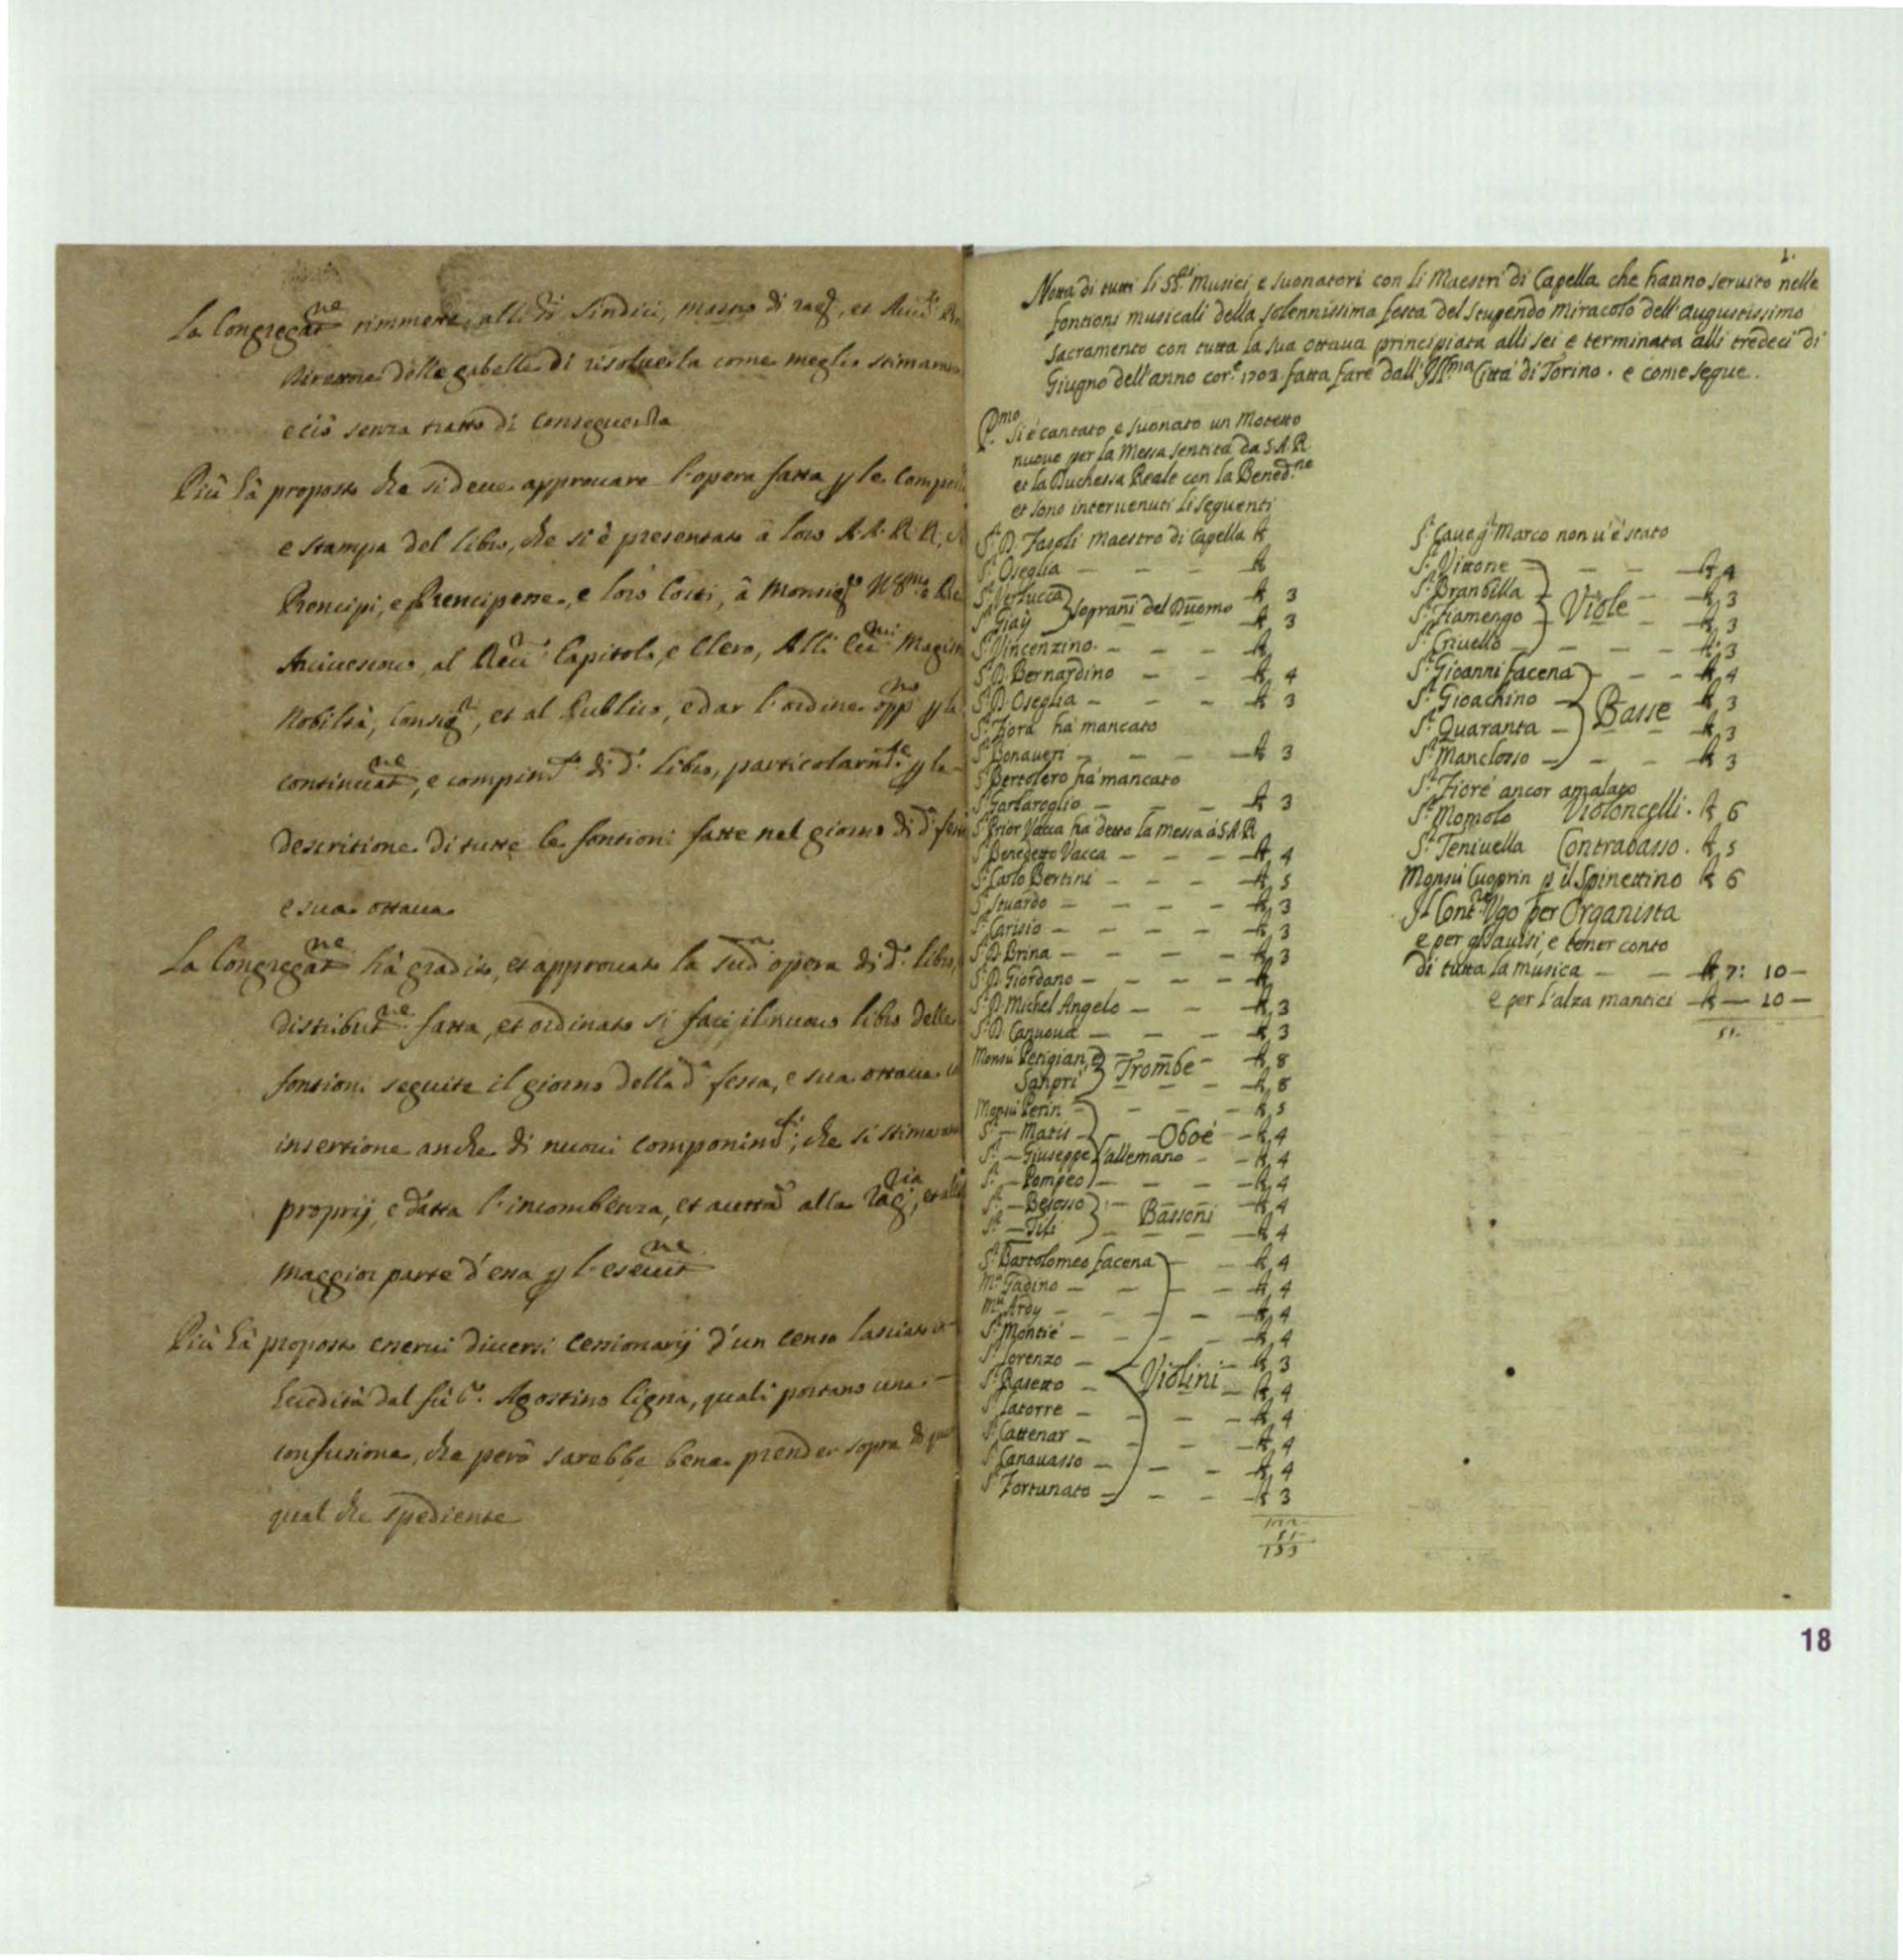 La Congregat.ne rimmette alli di Sindici, mastro di rag.,
Direttione delle gabelle di risoluerla come meglio stimaranno
e ciò senza tratto di conseguenza
Più hà proposto che si deue approuare l'opera fatta p le
e stampa del libro, che si è presentato à loro A.A.R.R.,
Prencipi, e Prencipesse, e loro Corti, à Monsig.r
Arciuescouo, al Capitolo, e Clero, Alli
Nobiltà, Consig., et al Publico, e dar l'ordine opp. p la
continuat.ne, e compim.to di d.o libro, particolarm.te p la
descritione di tutte le fontioni fatte nel giorno di d.a
e sua ottaua
La Congregat.ne hà gradito, et approuato la sud.a opera di d.o libro,
distribut.ne fatta, et ordinato si facci il nuouo libro delle
fontioni seguite il giorno della d.a festa, e sua ottaua
insertione anche di nuoui componim.ti, che si stimaranno
proprij, e datta l'incombenza, et auttà alla
maggior parte d'essa p l'esecut.ne
Più hà proposto esserui diuersi cessionarij d'un censo lasciato
heredità dal fù Agostino Cigna, quali portano una
confusione, che però sarebbe bene prender sopra di
qual che spediente
2.
Notta di tutti li SS.ri Musici, e suonatori con li Maestri di Capella che hanno seruito nelle
fontioni musicali della solennissima festa del Stupendo Miracolo dell'augustissimo
Sacramento con tutta la sua ottaua principiata alli sei e terminata alli tredeci di
Giugno dell'anno cor.e 1703 fatta fare dall'Ill.ma Città di Torino. e come segue.
P.mo Si è cantato e suonato un Motetto
nuouo per la Messa sentita da S.A.R.
et la Duchessa Reale con la Bened.ne
et sono interuenuti li seguenti
S.r D. Fasoli Maestro di Capella £
S.r Oseglia — — — £
S.r Verlucca £ 3
Soprani del Duomo
S.r Giaÿ £ 3
S.r Vincenzino — — — £
S.r D. Bernardino — — £ 4
S.r D. Oseglia — — — £ 3
S.r Fiora hà mancato
S.r Bonaueri — — — £ 3
S.r Bertolero hà mancato
S.r Garbaroglio — — — £ 3
S.r Prior Vacca ha detto la messa à S.A.R.
S.r Benedetto Vacca — — — £ 4
S.r Carlo Bertini — — — £ 5
S.r Stuardo — — — — £ 3
S.r Carisio — — — — £ 3
S.r D. Brina — — — — £ 3
S.r D. Giordano — — — — £
S.r D. Michel Angelo — — £ 3
S.r D. Canuoua — — — £ 3
Monsù Perigian, e £ 8
Trombe
Sanpri £ 8
Monsù Perin — — — £ 5
S.r — Matis — Oboé — £ 4
S.r — Giuseppe l'allemano — £ 4
S.r — Pompeo — — — £ 4
S.r — Besosso £ 4
Bassoni
S.r — Tili £ 4
S.r Bartolomeo Facena — £ 4
M.r Gadino — — — — £ 4
M.r Ardy — — — £ 4
S.r Montié — — — — £ 4
S.r Lorenzo — Violini — £ 3
S.r Rasetto — — £ 4
S.r Latorre — — — — £ 4
S.r Cattenar — — — £ 4
S.r Canauasso — — — £ 4
S.r Fortunato — — — £ 3
122
51
S.r Caue g.r Marco non u'è stato
S.r Vittone — — — £ 4
S.r Branbilla — Viole — £ 3
S.r Fiamengo — £ 3
S.r Criuello — — — — £ 3
S.r Gioanni Facena — — £ 4
S.r Gioachino — Basse £ 3
S.r Quaranta — £ 3
S.r Manclosso — — — £ 3
S.r Fioré ancor amalato
S.r Momolo Violoncelli. £ 6
S.r Teniuella Contrabasso. £ 5
Monsù Cuoprin p il Spinettino £ 6
Il Cont.re Ugo per Organista
e per gl'auisi, e tener conto
di tutta la musica — — £ 7: 10 —
e per l'alza mantici — £ — 10 —
51.
18